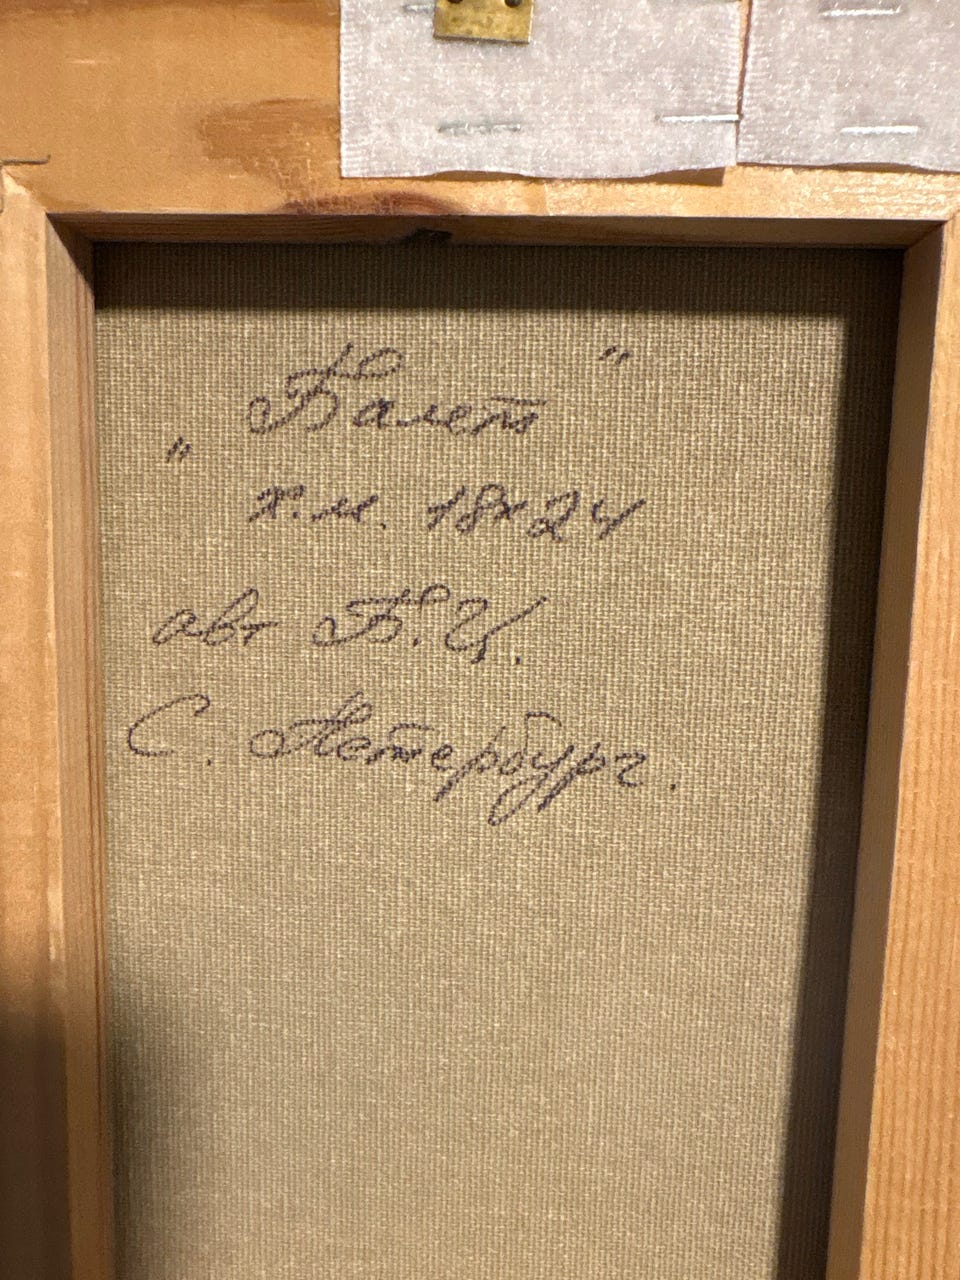 „Балет"
х.м. 18х24
авт Б.Ц.
С. Петербург.